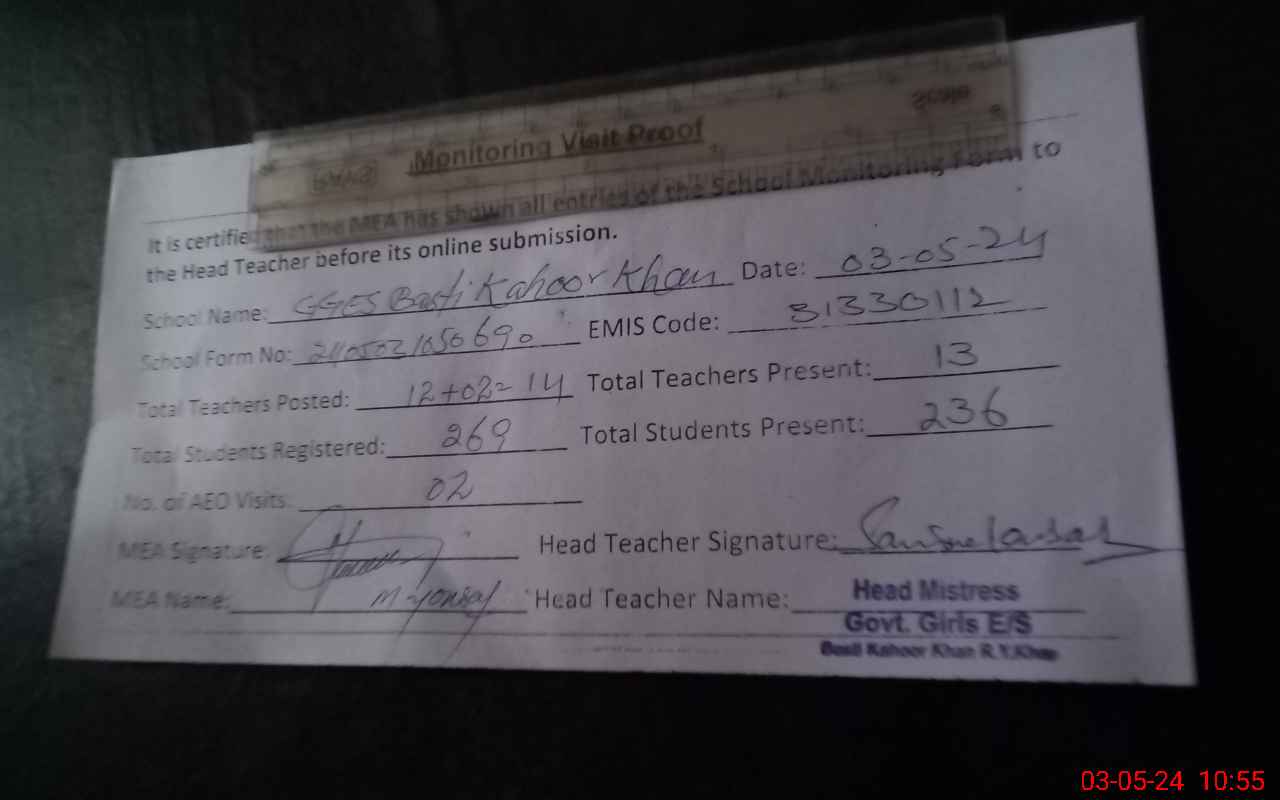 Monitoring Visit Proof
It is certified that the MEA has shown all entries of the School Monitoring Form to
the Head Teacher before its online submission.
School Name: GGES Basti Kahoor Khan Date: 03-05-24
School Form No: EMIS Code: 31330112
Total Teachers Posted: 12+02=14 Total Teachers Present: 13
Total Students Registered: 269 Total Students Present: 236
No. of AEO Visits: 02
MEA Signature: Head Teacher Signature:
MEA Name: M Yousaf Head Teacher Name: Head Mistress
Govt. Girls E/S
Basti Kahoor Khan R.Y.Khan
03-05-24 10:55